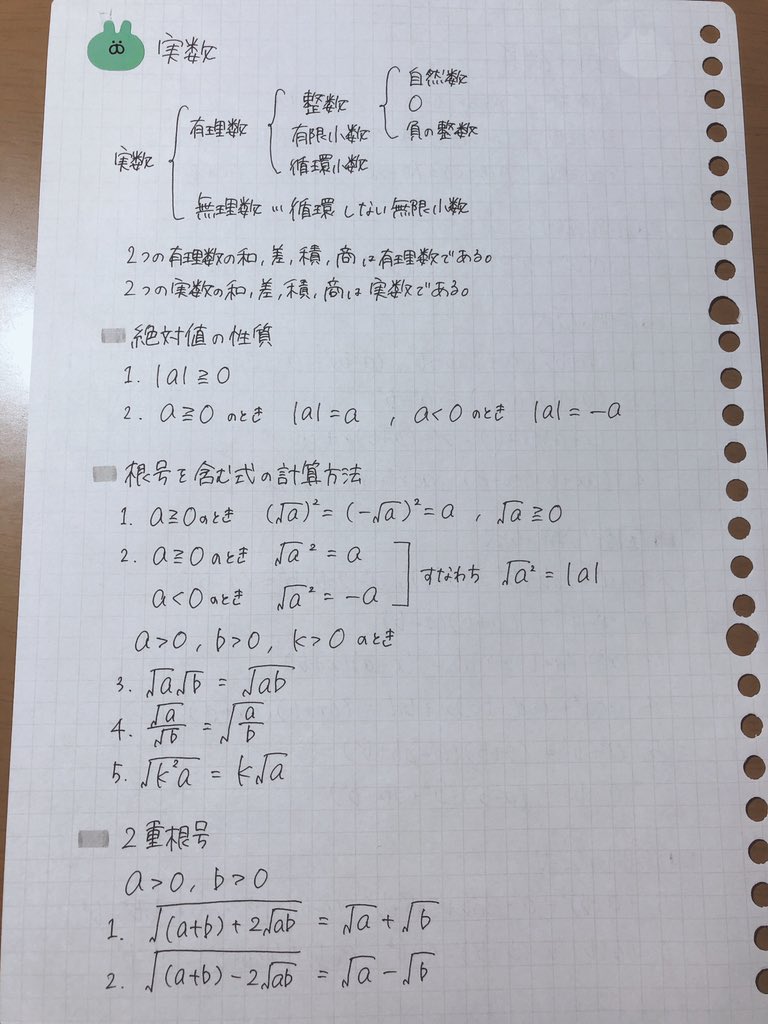 実数
実数 { 有理数 { 整数 { 自然数
0
負の整数
有限小数
循環小数
無理数 … 循環しない無限小数
2つの有理数の和, 差, 積, 商は有理数である。
2つの実数の和, 差, 積, 商は実数である。
絶対値の性質
1. |a| ≧ 0
2. a≧0 のとき |a| = a , a<0 のとき |a| = −a
根号を含む式の計算方法
1. a≧0のとき (√a)² = (−√a)² = a , √a ≧ 0
2. a≧0 のとき √a² = a
a<0 のとき √a² = −a
すなわち √a² = |a|
a>0, b>0, k>0 のとき
3. √a√b = √ab
4. √a/√b = √(a/b)
5. √k²a = k√a
2重根号
a>0, b>0
1. √((a+b)+2√ab) = √a + √b
2. √((a+b)−2√ab) = √a − √b